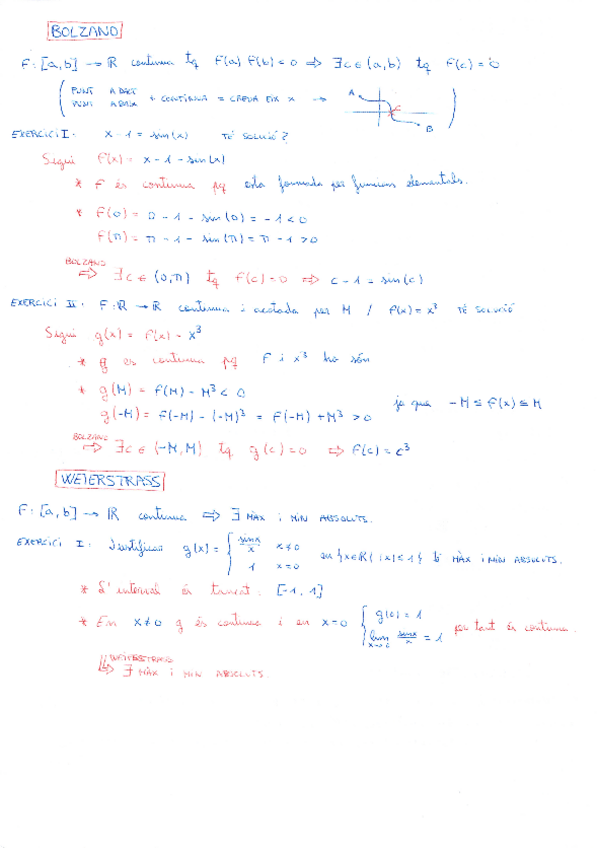 BOLZANO
F: [a,b] → ℝ contínua tq F(a) F(b) < 0 ⇒ ∃c ∈ (a,b) tq F(c) = 0
( PUNT A DALT
PUNT A BAIX + CONTÍNUA = CREUA EIX x → A B )
EXERCICI I: x - 1 = sin(x) TÉ SOLUCIÓ?
Sigui F(x) = x - 1 - sin(x)
* F és contínua pq està formada per funcions elementals.
* F(0) = 0 - 1 - sin(0) = -1 < 0
F(π) = π - 1 - sin(π) = π - 1 > 0
BOLZANO
⇒ ∃c ∈ (0,π) tq F(c) = 0 ⇒ c - 1 = sin(c)
EXERCICI II: F: ℝ → ℝ contínua i acotada per M / F(x) = x³ TÉ SOLUCIÓ
Sigui g(x) = F(x) - x³
* g és contínua pq F i x³ ho són
* g(M) = F(M) - M³ < 0
g(-M) = F(-M) - (-M)³ = F(-M) + M³ > 0 ja que -M ≤ F(x) ≤ M
BOLZANO
⇒ ∃c ∈ (-M,M) tq g(c) = 0 ⇒ F(c) = c³
WEIERSTRASS
F: [a,b] → ℝ contínua ⇒ ∃ MÀX i MÍN ABSOLUTS.
EXERCICI I: Justificar g(x) = { sinx/x x≠0
1 x=0 en {x∈ℝ | |x| ≤ 1} té MÀX i MÍN ABSOLUTS.
* L'interval és tancat: [-1, 1]
* En x≠0 g és contínua i en x=0 { g(0) = 1
lim x→0 sinx/x = 1 per tant és contínua.
WEIERSTRASS
⇒ ∃ MÀX i MÍN ABSOLUTS.